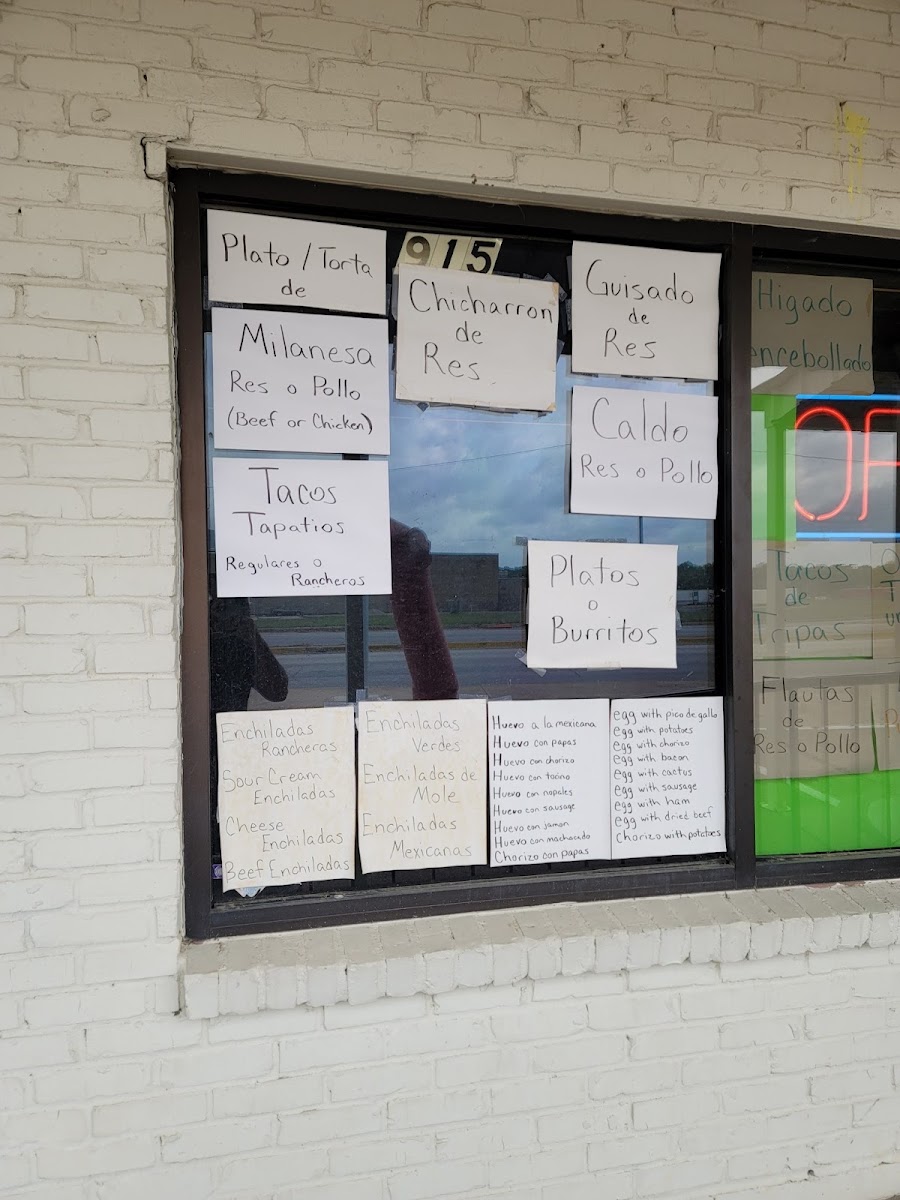 Plato / Torta
de
Milanesa
Res o Pollo
(Beef or Chicken)
Tacos
Tapatios
Regulares o
Rancheros
915
Chicharron
de
Res
Guisado
de
Res
Caldo
Res o Pollo
Platos
o
Burritos
Enchiladas
Rancheras
Sour Cream
Enchiladas
Cheese
Enchiladas
Beef Enchiladas
Enchiladas
Verdes
Enchiladas de
Mole
Enchiladas
Mexicanas
Huevo a la mexicana
Huevo con papas
Huevo con chorizo
Huevo con tocino
Huevo con nopales
Huevo con sausage
Huevo con jamon
Huevo con machacado
Chorizo con papas
egg with pico de gallo
egg with potatoes
egg with chorizo
egg with bacon
egg with cactus
egg with sausage
egg with ham
egg with dried beef
chorizo with potatoes
Higado
encebollado
Tacos
de
Tripas
Flautas
de
Res o Pollo